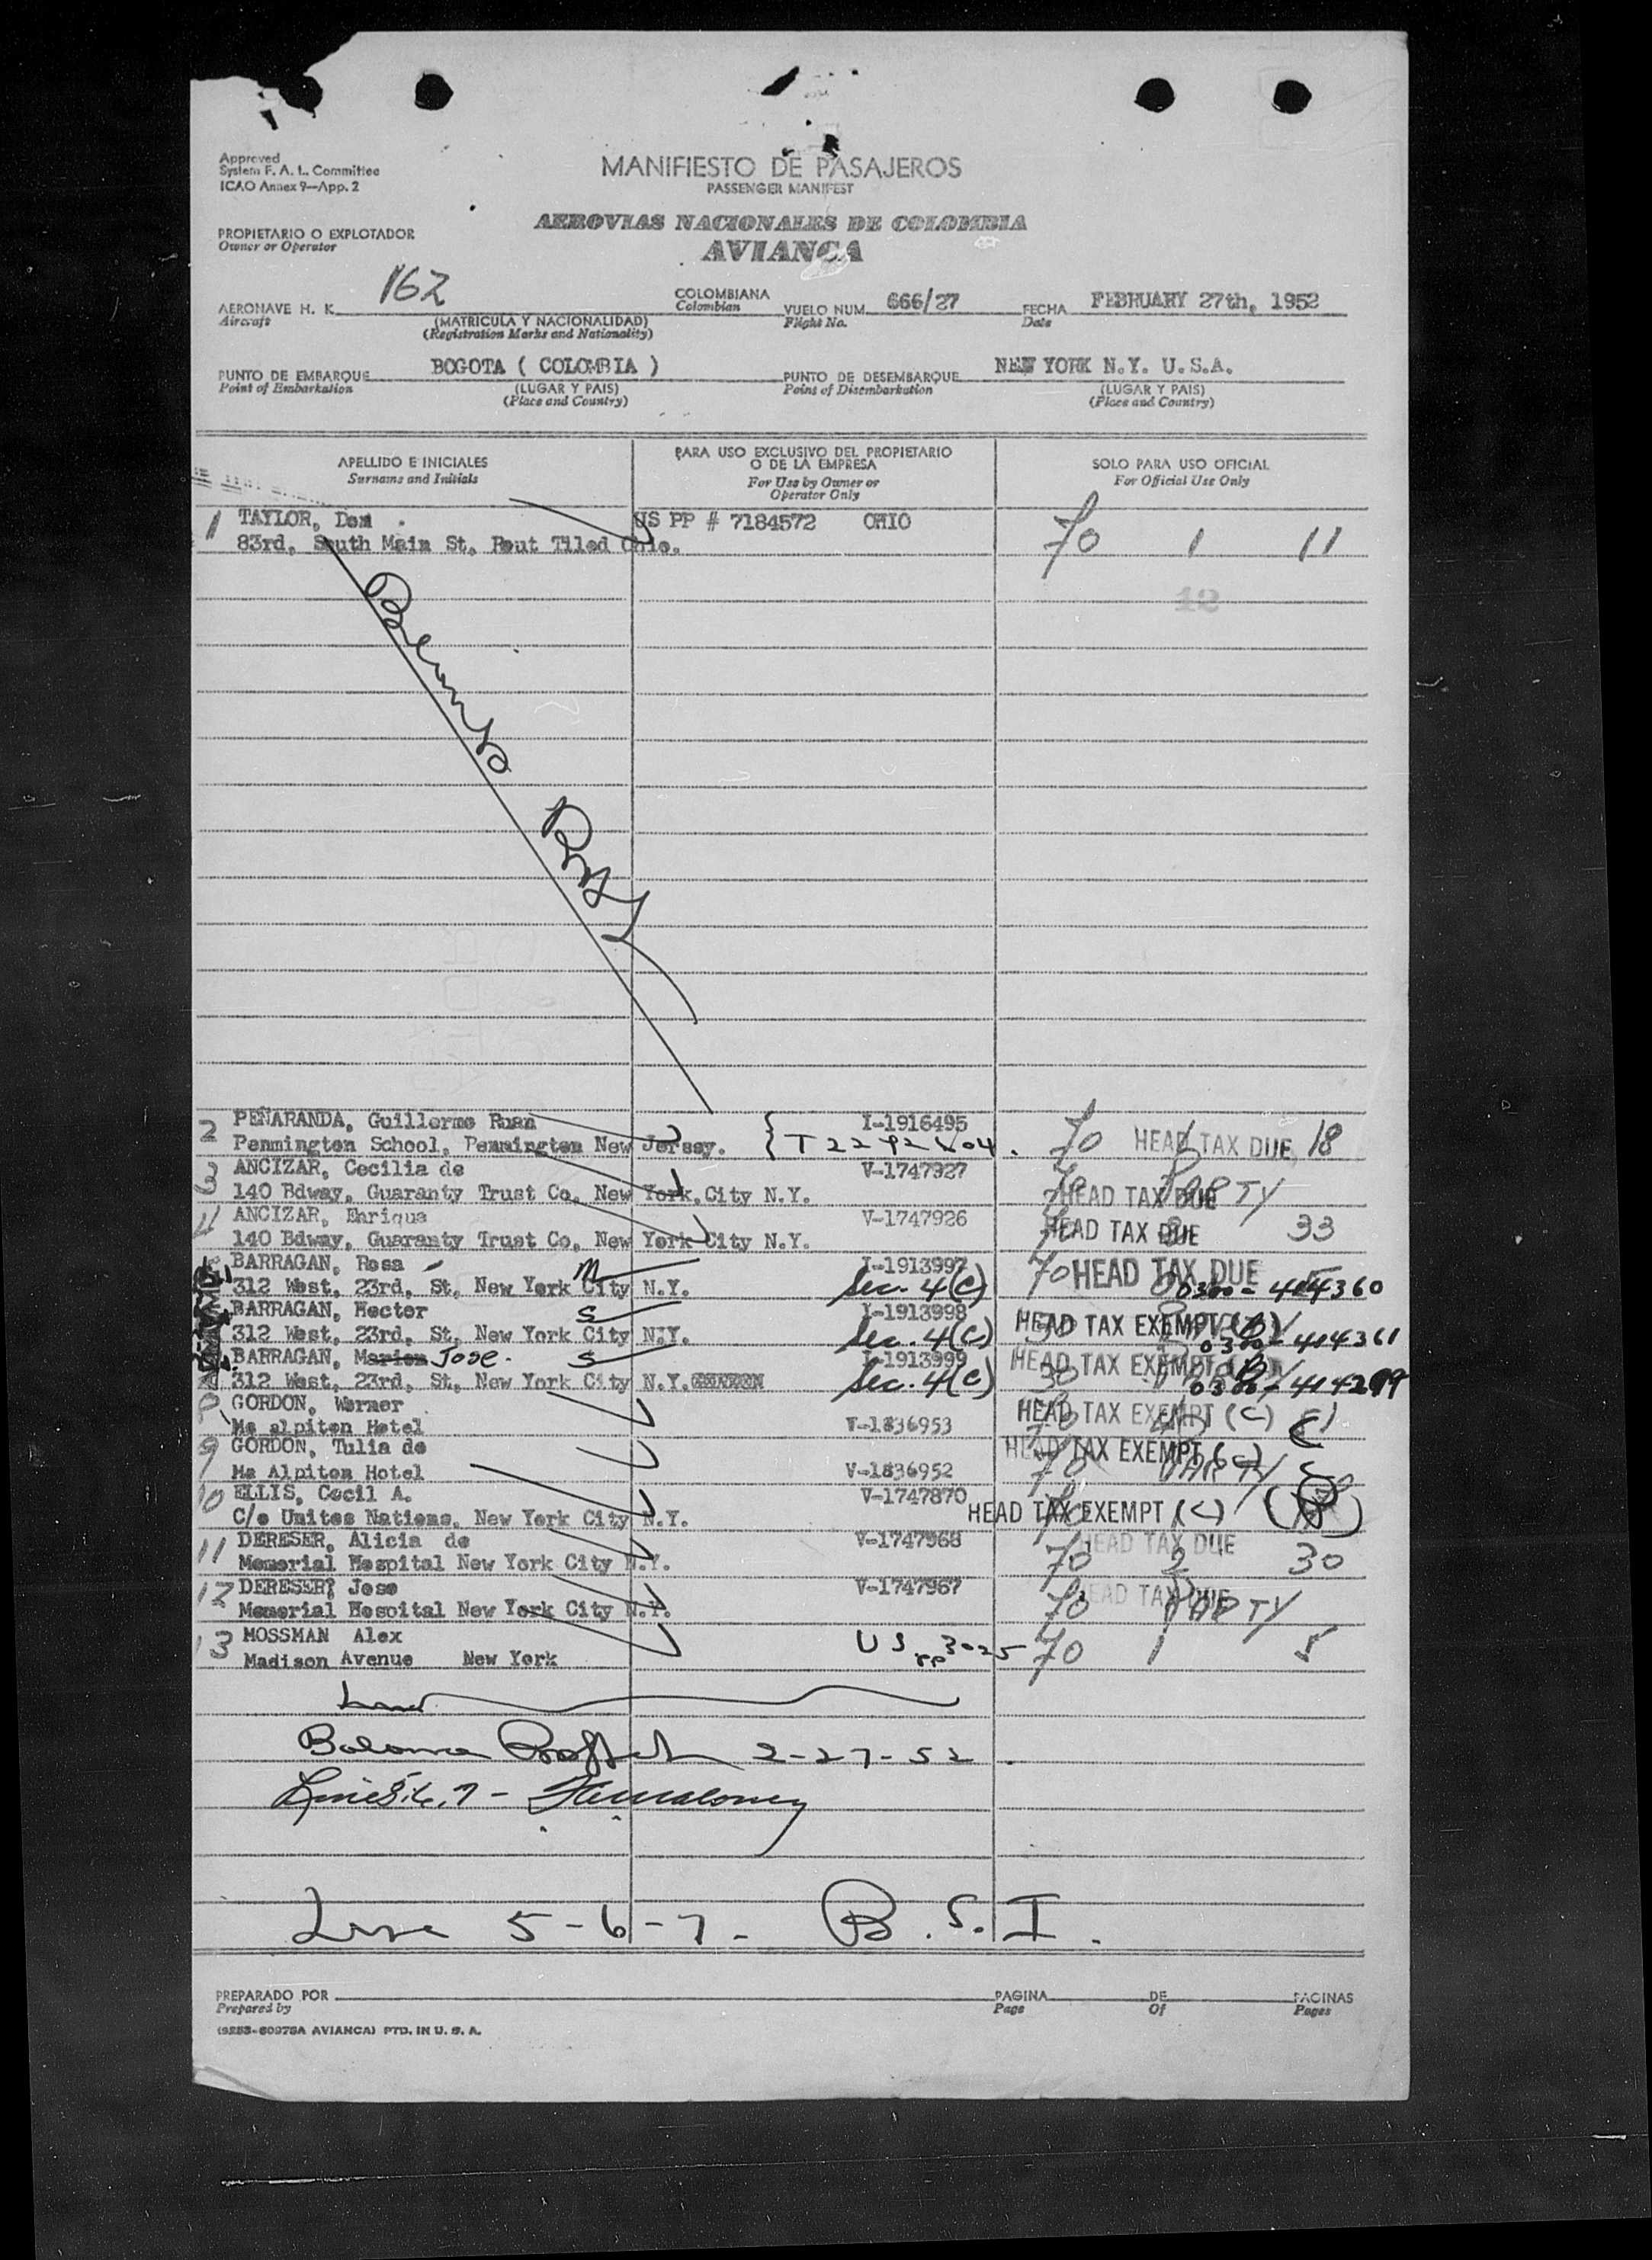 Approved
System F. A. L. Committee
ICAO Annex 9—App. 2
MANIFIESTO DE PASAJEROS
PASSENGER MANIFEST
AEROVIAS NACIONALES DE COLOMBIA
AVIANCA
PROPIETARIO O EXPLOTADOR
Owner or Operator
AERONAVE H. K. 162 COLOMBIANA VUELO NUM. 666/27 FECHA FEBRUARY 27th, 1952
Aircraft (MATRICULA Y NACIONALIDAD) Colombian Flight No. Date
(Registration Marks and Nationality)
PUNTO DE EMBARQUE BOGOTA ( COLOMBIA ) PUNTO DE DESEMBARQUE NEW YORK N.Y. U.S.A.
Point of Embarkation (LUGAR Y PAIS) Point of Disembarkation (LUGAR Y PAIS)
(Place and Country) (Place and Country)
APELLIDO E INICIALES PARA USO EXCLUSIVO DEL PROPIETARIO O DE LA EMPRESA SOLO PARA USO OFICIAL
Surname and Initials For Use by Owner or Operator Only For Official Use Only
1 TAYLOR, Dom . US PP # 7184572 OHIO 70 1 11
83rd, South Main St, Pout Tiled Ohio.
12
2 PEÑARANDA, Guillermo Ruan I-1916495
Pennington School, Pennington New Jersey. 70 HEAD TAX DUE 18
3 ANCIZAR, Cecilia de V-1747927
140 Bdway, Guaranty Trust Co, New York, City N.Y. HEAD TAX DUE PARTY
4 ANCIZAR, Enrique V-1747926
140 Bdway, Guaranty Trust Co, New York City N.Y. HEAD TAX DUE 33
BARRAGAN, Rosa M I-1913997 70 HEAD TAX DUE
312 West, 23rd, St, New York City N.Y. Sec. 4(c) 0300-414360
BARRAGAN, Hector S I-1913998 HEAD TAX EXEMPT (B)
312 West, 23rd, St, New York City N.Y. Sec. 4(c) 0300-414361
BARRAGAN, Marion Jose. S I-1913999 HEAD TAX EXEMPT (B)
312 West, 23rd, St, New York City N.Y. Sec. 4(c) 30 0300-414299
8 GORDON, Werner HEAD TAX EXEMPT (C)
Mc alpiton Hotel V-1836953
9 GORDON, Tulia de HEAD TAX EXEMPT (C)
Mc Alpiton Hotel V-1836952 70 PARTY
10 ELLIS, Cecil A. V-1747870
C/o Unites Nations, New York City N.Y. HEAD TAX EXEMPT (C)
11 DERESER, Alicia de V-1747968 HEAD TAX DUE
Memorial Hospital New York City N.Y. 70 2 30
12 DERESER, Jose V-1747967 HEAD TAX DUE
Memorial Hospital New York City N.Y. 70 PARTY
13 MOSSMAN Alex US PP 3025 70 1 5
Madison Avenue New York
2-27-52
Lines 5.6.7 -
Line 5-6-7- B.S.I.
PREPARADO POR PAGINA DE PAGINAS
Prepared by Page Of Pages
(9253-60975A AVIANCA) PTD. IN U. S. A.